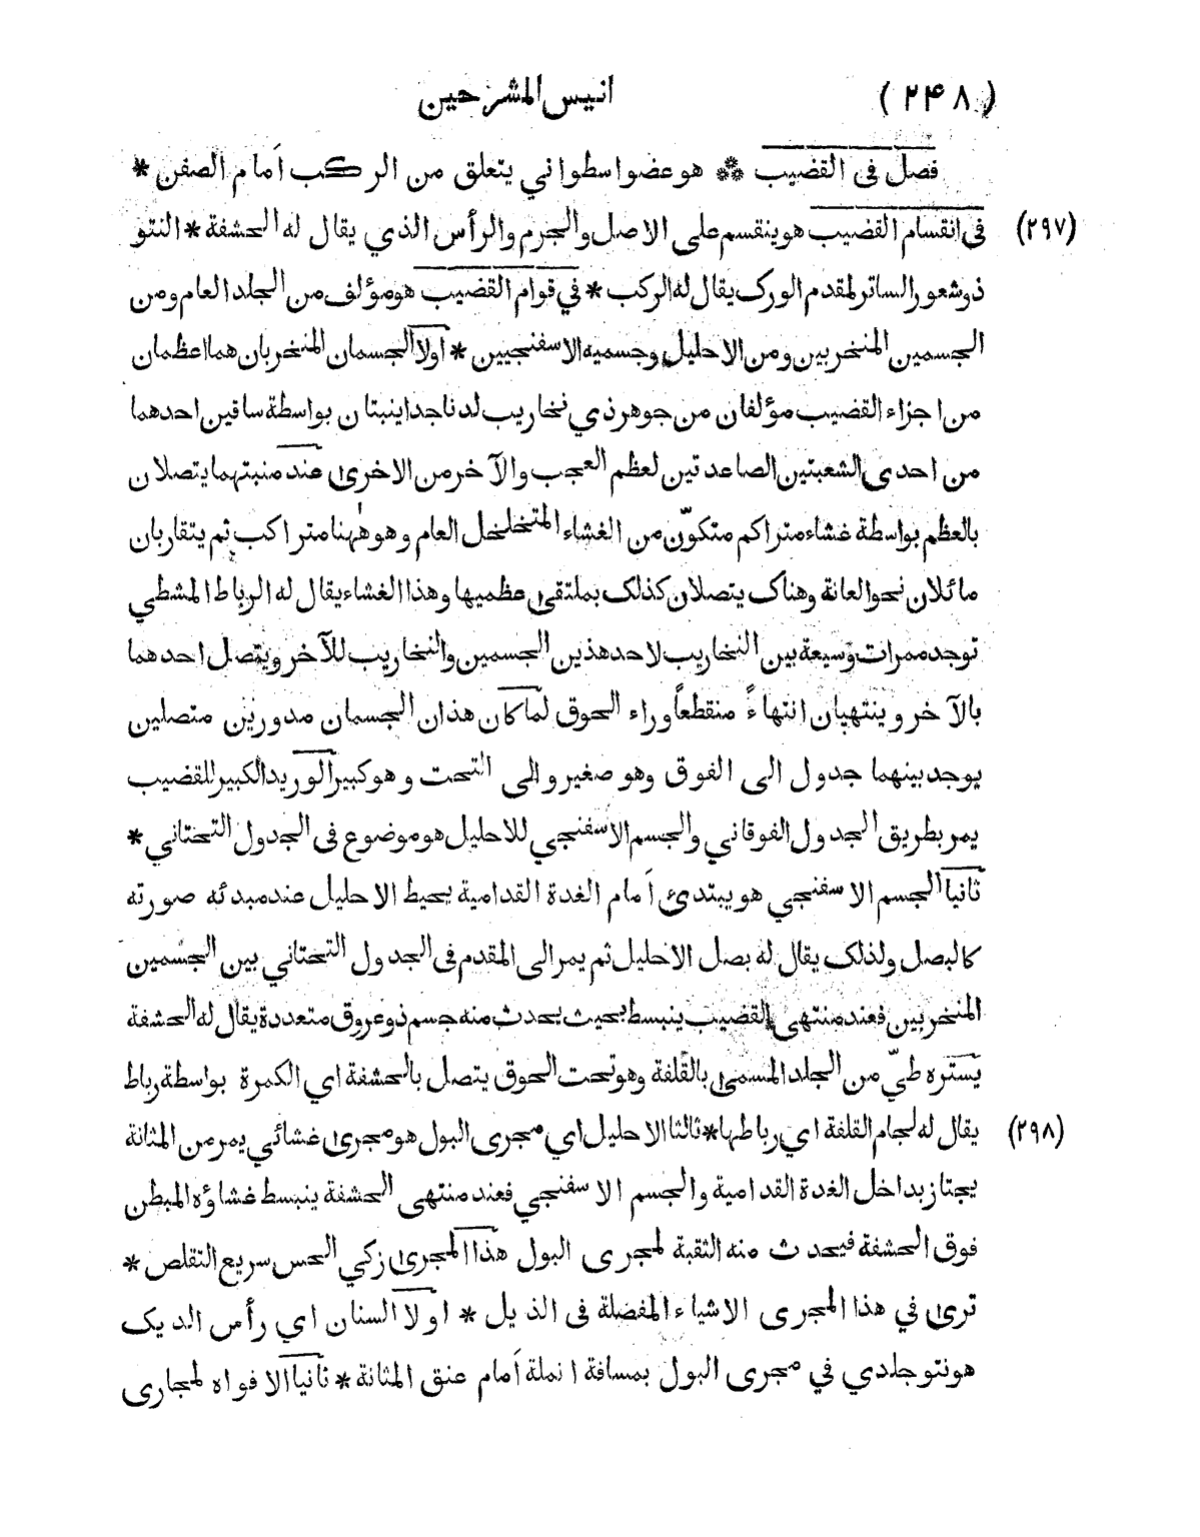 (۲۴۸) انيس المشرحين
فصل فى القضيب ⁂ هو عضو اسطواني يتعلق من الركب أمام الصفن *
(۲۹۷) فى انقسام القضيب هو ينقسم على الاصل والجرم والرأس الذي يقال له الحشفة * النتو
ذو شعور الساتر لمقدم الورك يقال له الركب * في قوام القضيب هو مؤلف من الجلد العام ومن
الجسمين المنخربين ومن الاحليل وجسميه الاسفنجيين * اولا الجسمان المنخربان هما اعظمان
من اجزاء القضيب مؤلفان من جوهر ذي نخاريب لدنا جدا ينبتان بواسطة ساقين احدهما
من احدى الشعبتين الصاعدتين لعظم العجب والآخر من الاخرى عند منبتهما يتصلان
بالعظم بواسطة غشاء متراكم متكوّن من الغشاء المتخلخل العام وهو هٰهنا متراكب ثم يتقاربان
مائلان نحو العانة وهناك يتصلان كذلك بملتقى عظميها وهذا الغشاء يقال له الرباط المشطي
توجد ممرات وسيعة بين النخاريب لاحد هذين الجسمين والنخاريب للآخر ويتصل احدهما
بالآخر وينتهيان انتهاءً منقطعاً وراء الحوق لما كان هذان الجسمان مدورين متصلين
يوجد بينهما جدول الى الفوق وهو صغير والى التحت وهو كبير الوريد الكبير للقضيب
يمر بطريق الجدول الفوقاني والجسم الاسفنجي للاحليل هو موضوع فى الجدول التحتاني *
ثانيا الجسم الاسفنجي هو يبتدئ أمام الغدة القدامية يحيط الاحليل عند مبدئه صورته
كالبصل ولذلك يقال له بصل الاحليل ثم يمر الى المقدم فى الجدول التحتاني بين الجسمين
المنخربين فعند منتهى القضيب ينبسط بحيث يحدث منه جسم ذو عروق متعددة يقال له الحشفة
يستره طيّ من الجلد المسمى بالقلفة وهو تحت الحوق يتصل بالحشفة اي الكمرة بواسطة رباط
(۲۹۸) يقال له لجام القلفة اي رباطها * ثالثا الاحليل اي مجرى البول هو مجرى غشائي يمر من المثانة
يجتاز بداخل الغدة القدامية والجسم الاسفنجي فعند منتهى الحشفة ينبسط غشاؤه المبطن
فوق الحشفة فيحدث منه الثقبة لمجرى البول هذا المجرى زكي الحس سريع التقلص *
ترى في هذا المجرى الاشياء المفضلة فى الذيل * اولا السنان اي رأس الديك
هو نتو جلدي في مجرى البول بمسافة انملة أمام عنق المثانة * ثانيا الافواه لمجارى